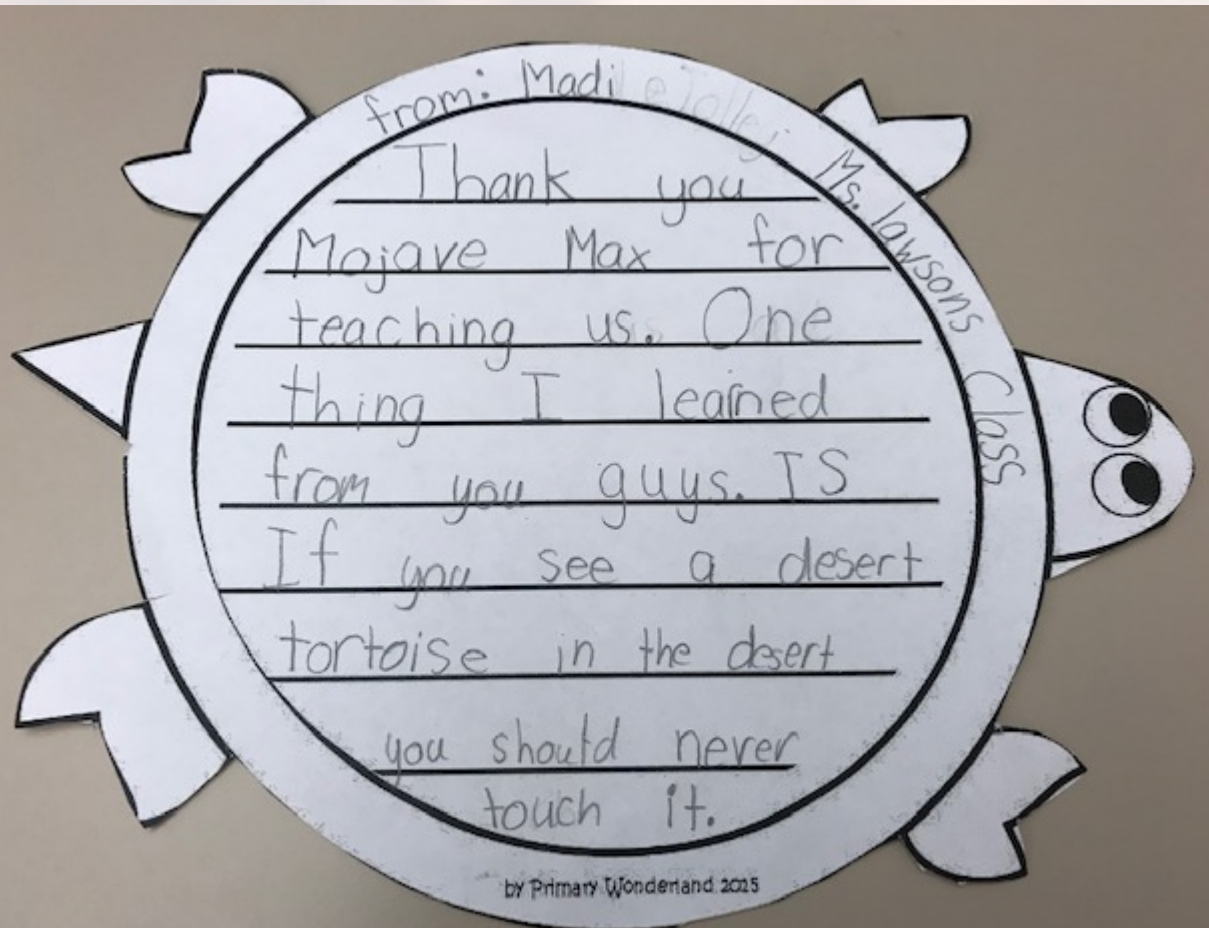 from: Madi
Ms. lawsons Class
Thank you
Mojave Max for
teaching us. One
thing I learned
from you guys. IS
If you see a desert
tortoise in the desert
you should never
touch it.
by Primary Wonderland 2025